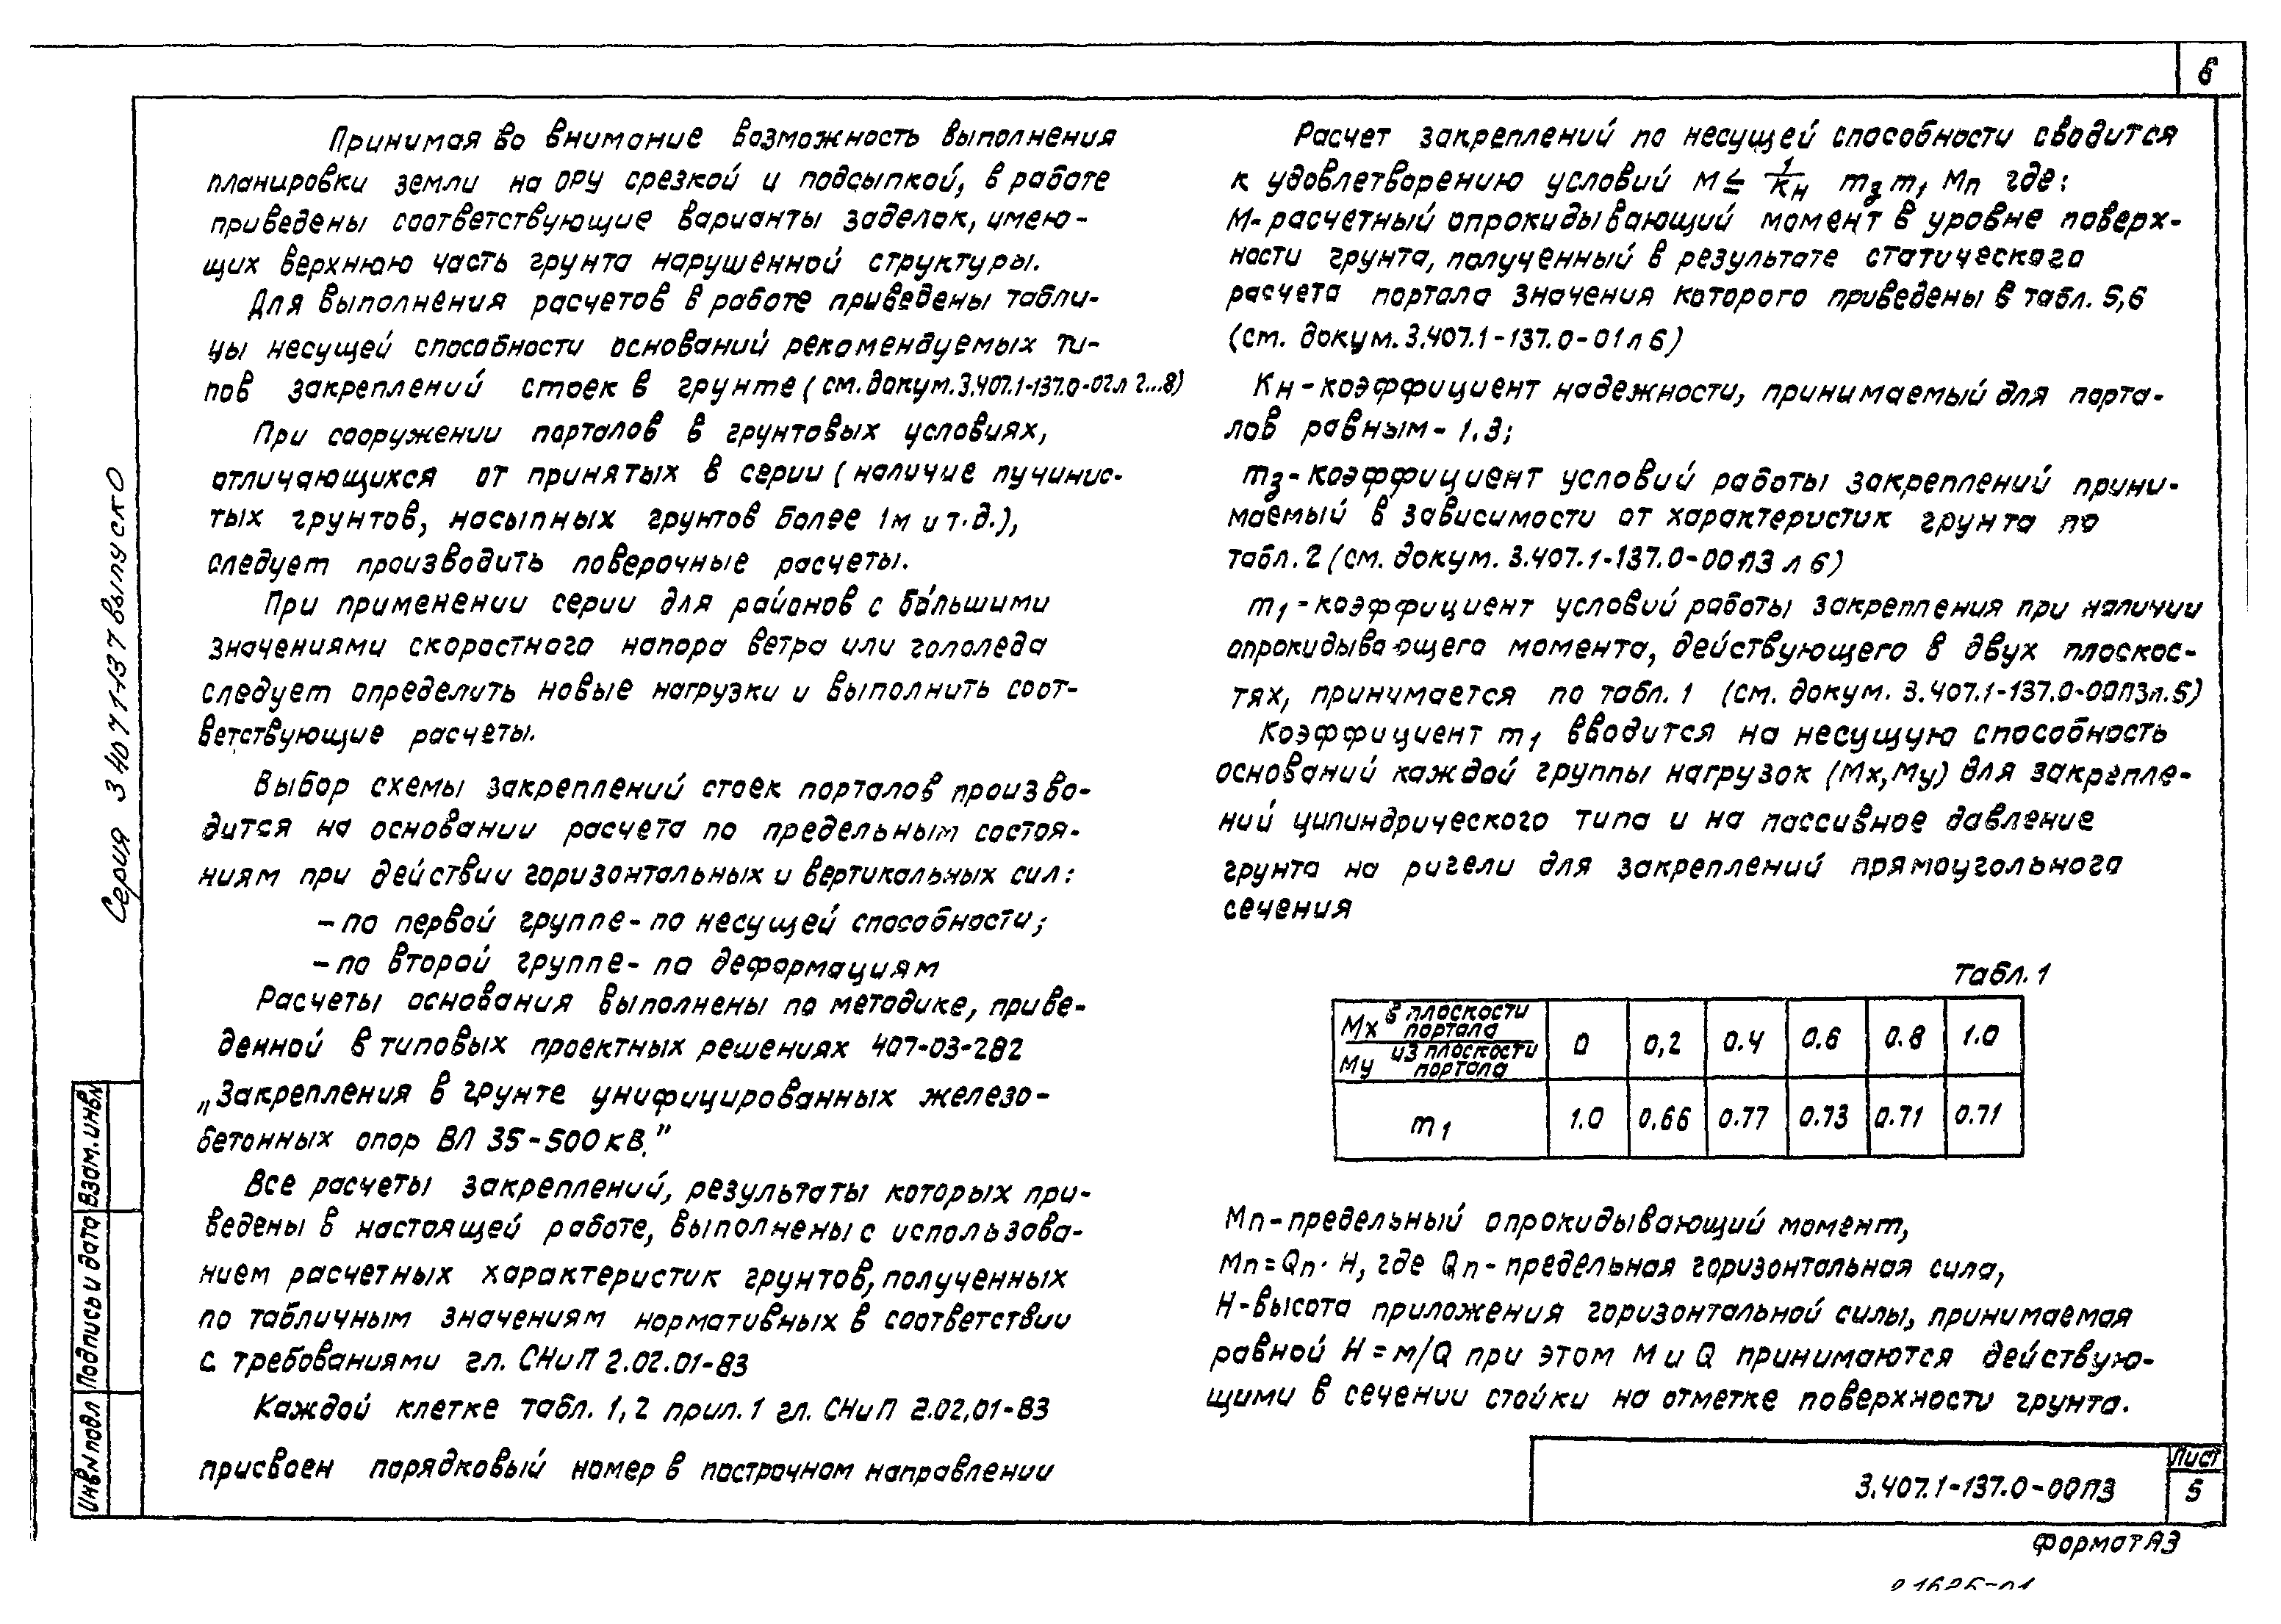 6
Принимая во внимание возможность выполнения
планировки земли на ОРУ срезкой и подсыпкой, в работе
приведены соответствующие варианты заделок, имею-
щих верхнюю часть грунта нарушенной структуры.
Для выполнения расчетов в работе приведены табли-
цы несущей способности оснований рекомендуемых ти-
пов закреплений стоек в грунте (см. докум. 3.407.1-137.0-02л 2...8)
При сооружении порталов в грунтовых условиях,
отличающихся от принятых в серии (наличие пучинис-
тых грунтов, насыпных грунтов более 1м и т.д.),
следует производить поверочные расчеты.
При применении серии для районов с бо́льшими
значениями скоростного напора ветра или гололеда
следует определить новые нагрузки и выполнить соот-
ветствующие расчеты.
Выбор схемы закреплений стоек порталов произво-
дится на основании расчета по предельным состоя-
ниям при действии горизонтальных и вертикальных сил:
- по первой группе - по несущей способности;
- по второй группе - по деформациям
Расчеты основания выполнены по методике, приве-
денной в типовых проектных решениях 407-03-282
„Закрепления в грунте унифицированных железо-
бетонных опор ВЛ 35-500 кВ."
Все расчеты закреплений, результаты которых при-
ведены в настоящей работе, выполнены с использова-
нием расчетных характеристик грунтов, полученных
по табличным значениям нормативных в соответствии
с требованиями гл. СНиП 2.02.01-83
Каждой клетке табл. 1, 2 прил. 1 гл. СНиП 2.02.01-83
присвоен порядковый номер в построчном направлении
Расчет закреплений по несущей способности сводится
к удовлетворению условий М ≤ 1/Кн mз m1 Мп где:
М - расчетный опрокидывающий момент в уровне поверх-
ности грунта, полученный в результате статического
расчета портала значения которого приведены в табл. 5,6
(см. докум. 3.407.1-137.0-01л 6)
Кн - коэффициент надежности, принимаемый для порта-
лов равным - 1.3;
mз - коэффициент условий работы закреплений прини-
маемый в зависимости от характеристик грунта по
табл. 2 (см. докум. 3.407.1-137.0-00ПЗ л 6)
m1 - коэффициент условий работы закрепления при наличии
опрокидывающего момента, действующего в двух плоскос-
тях, принимается по табл. 1 (см. докум. 3.407.1-137.0-00ПЗ л. 5)
Коэффициент m1 вводится на несущую способность
оснований каждой группы нагрузок (Мх, Му) для закрепле-
ний цилиндрического типа и на пассивное давление
грунта на ригели для закреплений прямоугольного
сечения
Табл. 1
Мх в плоскости портала / Му из плоскости портала 0 0,2 0.4 0.6 0.8 1.0
m1 1.0 0.66 0.77 0.73 0.71 0.71
Мп - предельный опрокидывающий момент,
Мп = Qп · Н, где Qп - предельная горизонтальная сила,
Н - высота приложения горизонтальной силы, принимаемая
равной Н = м/Q при этом М и Q принимаются действую-
щими в сечении стойки на отметке поверхности грунта.
Серия 3.407.1-137 выпуск 0
Инв № подл
Подпись и дата
Взам. инв №
3.407.1-137.0-00ПЗ
Лист
5
Формат А3